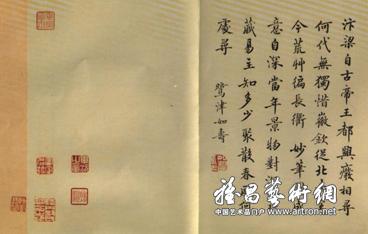 汴梁自古帝王都興廢相尋
何代無獨惜徽欽從北
今荒艸徧長衢 妙筆
意自深當年景物對
藏易主知多少聚散春何
處尋
鷺津如壽
雅昌藝術網
中国艺术品门户 www.artron.net